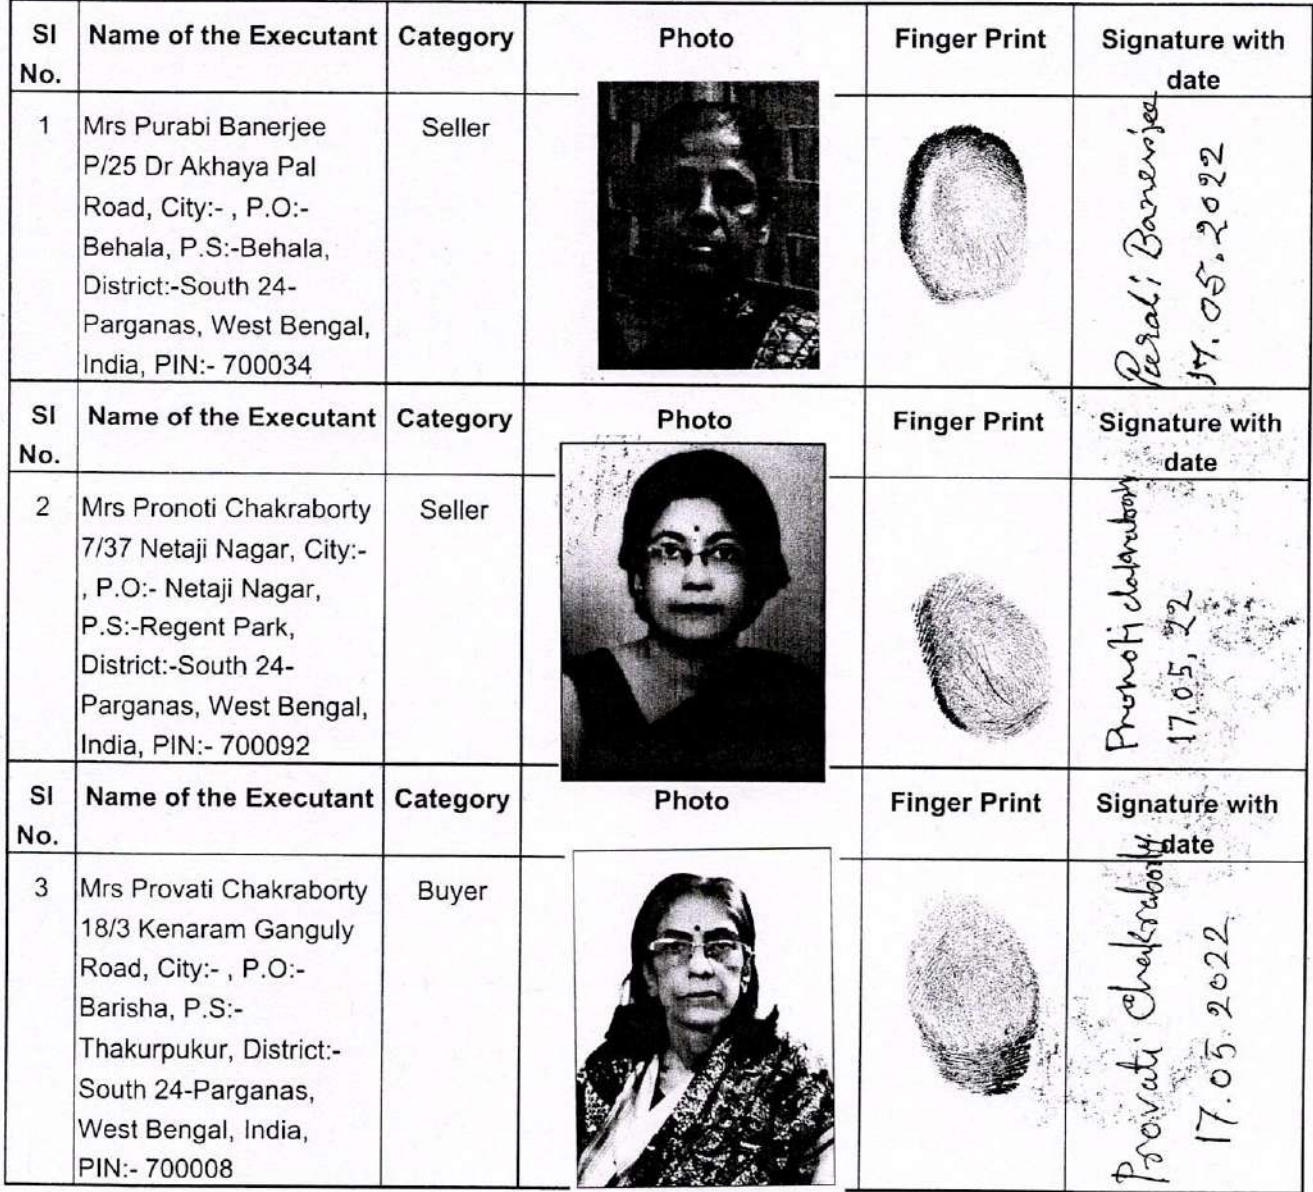 Sl No. Name of the Executant Category Photo Finger Print Signature with date
1 Mrs Purabi Banerjee Seller
P/25 Dr Akhaya Pal
Road, City:- , P.O:-
Behala, P.S:-Behala,
District:-South 24-
Parganas, West Bengal,
India, PIN:- 700034
Purabi Banerjee
17.05.2022
Sl No. Name of the Executant Category Photo Finger Print Signature with date
2 Mrs Pronoti Chakraborty Seller
7/37 Netaji Nagar, City:-
, P.O:- Netaji Nagar,
P.S:-Regent Park,
District:-South 24-
Parganas, West Bengal,
India, PIN:- 700092
Pronoti Chakraborty
17.05.22
Sl No. Name of the Executant Category Photo Finger Print Signature with date
3 Mrs Provati Chakraborty Buyer
18/3 Kenaram Ganguly
Road, City:- , P.O:-
Barisha, P.S:-
Thakurpukur, District:-
South 24-Parganas,
West Bengal, India,
PIN:- 700008
Provati Chakraborty
17.05.2022